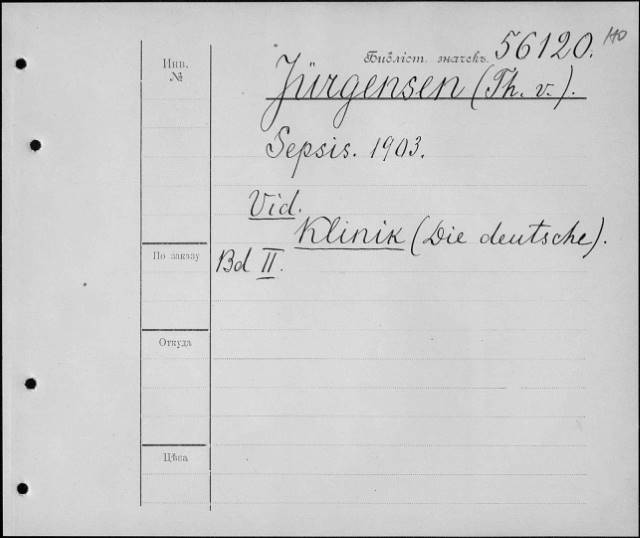 Инв. №
Библіот. значекъ 56120. 140
Jürgensen (Th. v.).
Sepsis. 1903.
Vid.
Klinik (Die deutsche).
По заказу
Bd II.
Откуда
Цѣна